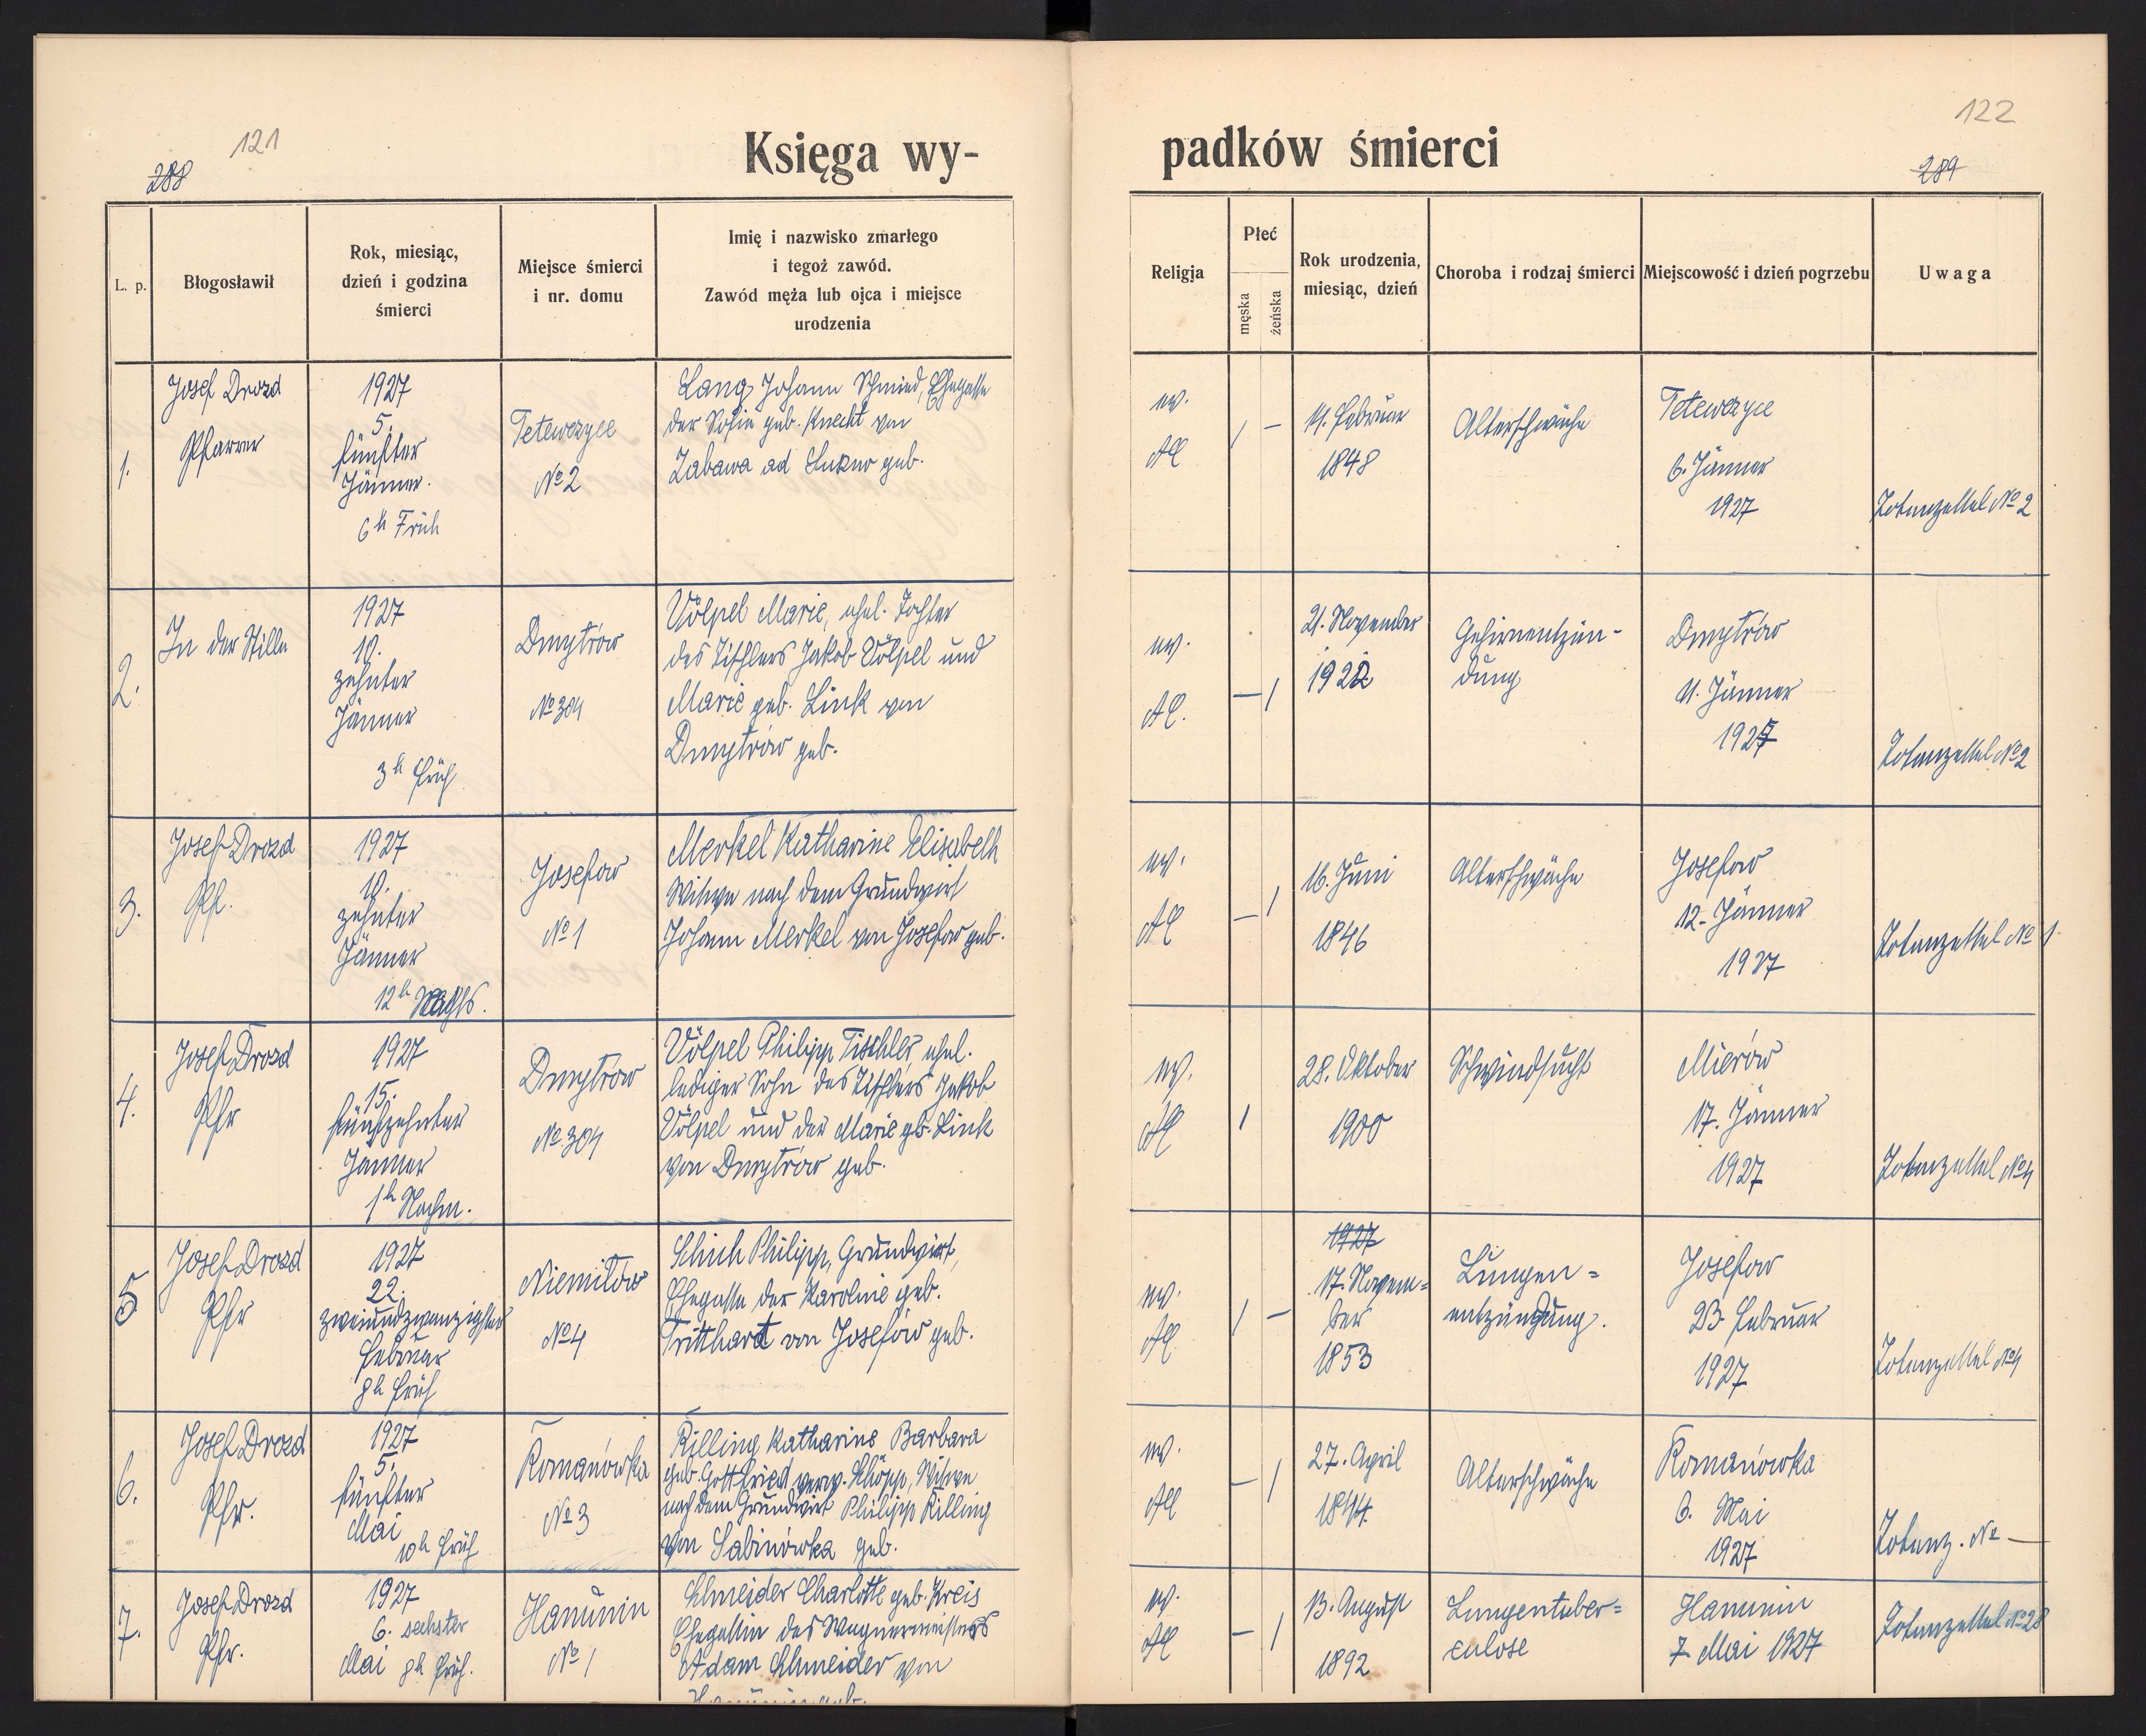 121
288
Księga wy-
L. p.
Błogosławił
Rok, miesiąc,
dzień i godzina
śmierci
Miejsce śmierci
i nr. domu
Imię i nazwisko zmarłego
i tegoż zawód.
Zawód męża lub ojca i miejsce
urodzenia
1.
Josef Drozd
Pfarrer
1927
5.
fünfter
Jänner.
6h Früh
Tetewczyce
No 2
Lang Johann Schmied, Ehegatte
der Sofie geb. Knecht von
Zabawa ad geb.
2.
In der Stille
1927
10.
zehnter
Jänner
3h früh
Dmytrów
No 304
Völpel Marie, ehel. Tochter
des Tischlers Jakob Völpel und
Marie geb. Link von
Dmytrów geb.
3.
Josef Drozd
Pfr.
1927
10.
zehnter
Jänner
12h Nachts.
Josefow
No 1
Merkel Katharine Elisabeth
Witwe nach dem Grundwirt
Johann Merkel von Josefow geb.
4.
Josef Drozd
Pfr
1927
15.
fünfzehnter
Jänner
1h Nachm.
Dmytrow
No 304
Völpel Philipp Tischler, ehel.
lediger Sohn des Tischlers Jakob
Völpel und der Marie gb. Link
von Dmytrów geb.
5
Josef Drozd
Pfr
1927
22.
zweiundzwanzigster
Februar
8h früh
Niemiłów
No 4
Schich Philipp, Grundwirt,
Ehegatte der Karoline geb.
Tritthart von Josefów geb.
6.
Josef Drozd
Pfr.
1927
5.
fünfter
Mai
10h früh
Romanówka
No 3
Rilling Katharine Barbara
geb. Gottfried verw. Schöpp, Witwe
nach dem Grundwirt Philipp Rilling
von Sabinówka geb.
7.
Josef Drozd
Pfr.
1927
6. sechster
Mai 8h früh.
Hanunin
No 1
Schneider Charlotte geb. Kreis
Ehegattin des Wagnermeisters
Adam Schneider von
Hanunin geb.
122
289
padków śmierci
Religja
Płeć
męska
żeńska
Rok urodzenia,
miesiąc, dzień
Choroba i rodzaj śmierci
Miejscowość i dzień pogrzebu
Uwaga
ev.
AC
/ –
11. Februar
1848
Altersschwäche
Tetewczyce
6. Jänner
1927
Totenzettel No 2
ev.
AC.
– /
21. November
1922
Gehirnentzün-
dung
Dmytrów
11. Jänner
1927
Totenzettel No 2
ev.
AC
– /
16. Juni
1846
Altersschwäche
Josefow
12. Jänner
1927
Totenzettel No 1.
ev.
AC
/
28. Oktober
1900
Schwindsucht
Mierów
17. Jänner
1927
Totenzettel No 4
ev.
AC
/ –
1927
17. Novem=
ber
1853
Lungen=
entzündung.
Josefow
23. Februar
1927
Totenzettel No 4
ev.
AC
– /
27. April
1844
Altersschwäche
Romanówka
6. Mai
1927
Totenz. No —
ev.
AC
– /
13. August
1892
Lungentuber=
culose
Hanunin
7 Mai 1927
Totenzettel No 28